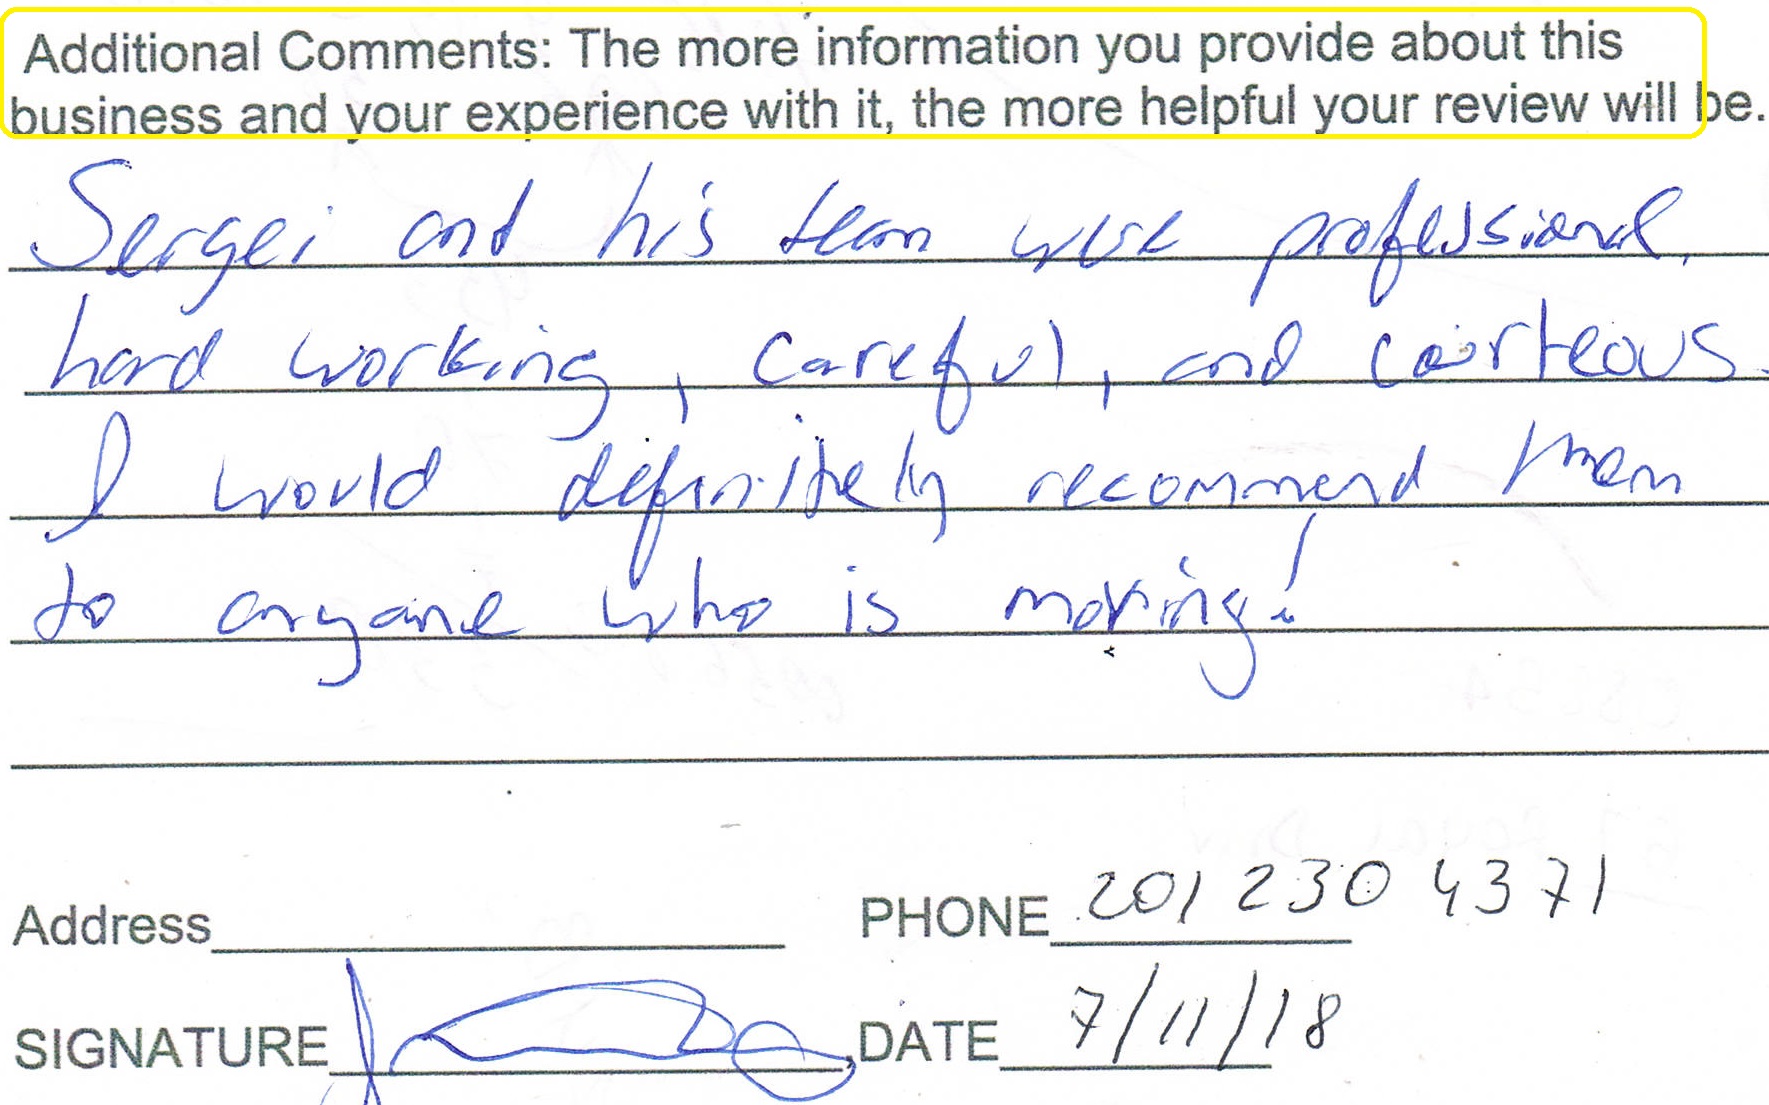 Additional Comments: The more information you provide about this
business and your experience with it, the more helpful your review will be.
Sergei and his team were professional,
hard working, careful, and courteous.
I would definitely recommend them
to anyone who is moving!
Address PHONE 201 230 4371
SIGNATURE DATE 7/11/18